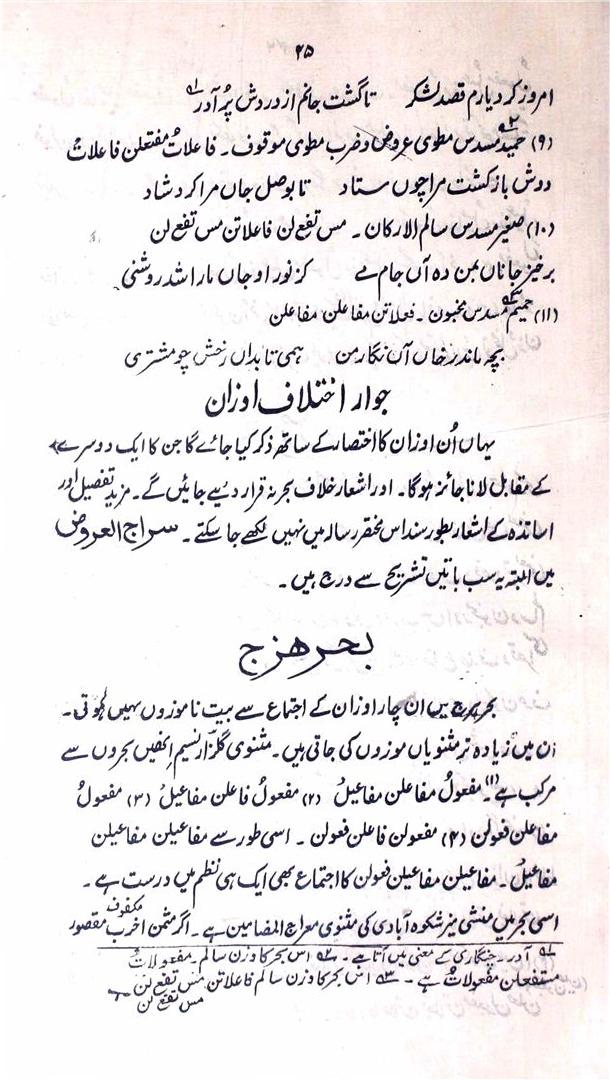 ۲۵
امروز کرد یارم قصد لشکر تا گشت جانم از دردش پُر آدر ۱؎
(۹) حمید ۲؎ مسدس مطوی عروض و ضرب مطوی موقوف۔ فاعلاتُ مفتعلن فاعلاتُ
دوش باز گشت مرا چوں ستاد تا بوصل جاں مرا کرد شاد
(۱۰) صغیر مسدس سالم الارکان۔ مس تفع لن فاعلاتن مس تفع لن
برخیز جاناں بمن دہ آں جام مے کز نور او جاں مارا شد روشنی
(۱۱) حمیم ۳؎ مسدس مخبون۔ فعلاتن مفاعلن مفاعلن
بچہ ماند رخاں آں نگار من ہمی تابداں رخش چو مشتری
جوازِ اختلاف اوزان
یہاں اُن اوزان کا اختصار کے ساتھ ذکر کیا جائے گا جن کا ایک دوسرے
کے مقابل لانا جائز ہوگا۔ اور اشعار خلاف بحر نہ قرار دیئے جائیں گے۔ مزید تفصیل اور
اساتذہ کے اشعار بطور سند اس مختصر رسالہ میں نہیں لکھے جا سکتے۔ سراج العروض
میں البتہ یہ سب باتیں تشریح سے درج ہیں۔
بحر ھزج
بحر ہزج میں ان چار اوزان کے اجتماع سے بیت ناموزوں نہیں ہوتی۔
ان میں زیادہ تر مثنویاں موزوں کی جاتی ہیں۔ مثنوی گلزار نسیم انھیں بحروں سے
مرکب ہے۔ (۱) مفعولُ مفاعلن مفاعیلُ (۲) مفعولُ فاعلن مفاعیلُ (۳) مفعولُ
مفاعلن فعولن (۴) مفعولن فاعلن فعولن۔ اسی طور سے مفاعیلن مفاعیلن
مفاعیلُ۔ مفاعیلن مفاعیلن فعولن کا اجتماع بھی ایک ہی نظم میں درست ہے۔
اسی بحر میں منشی منیر شکوہ آبادی کی مثنوی معراج المضامین ہے۔ اگر مثمن اخرب مکفوف مقصور
۱؎ آدر۔ چنگاری کے معنی میں آتا ہے۔ ۲؎ اس بحر کا وزن سالم۔ مفعولاتُ
مستفعلن مفعولاتُ ہے۔ ۳؎ اس بحر کا وزن سالم فاعلاتن مس تفع لن
مس تفع لن